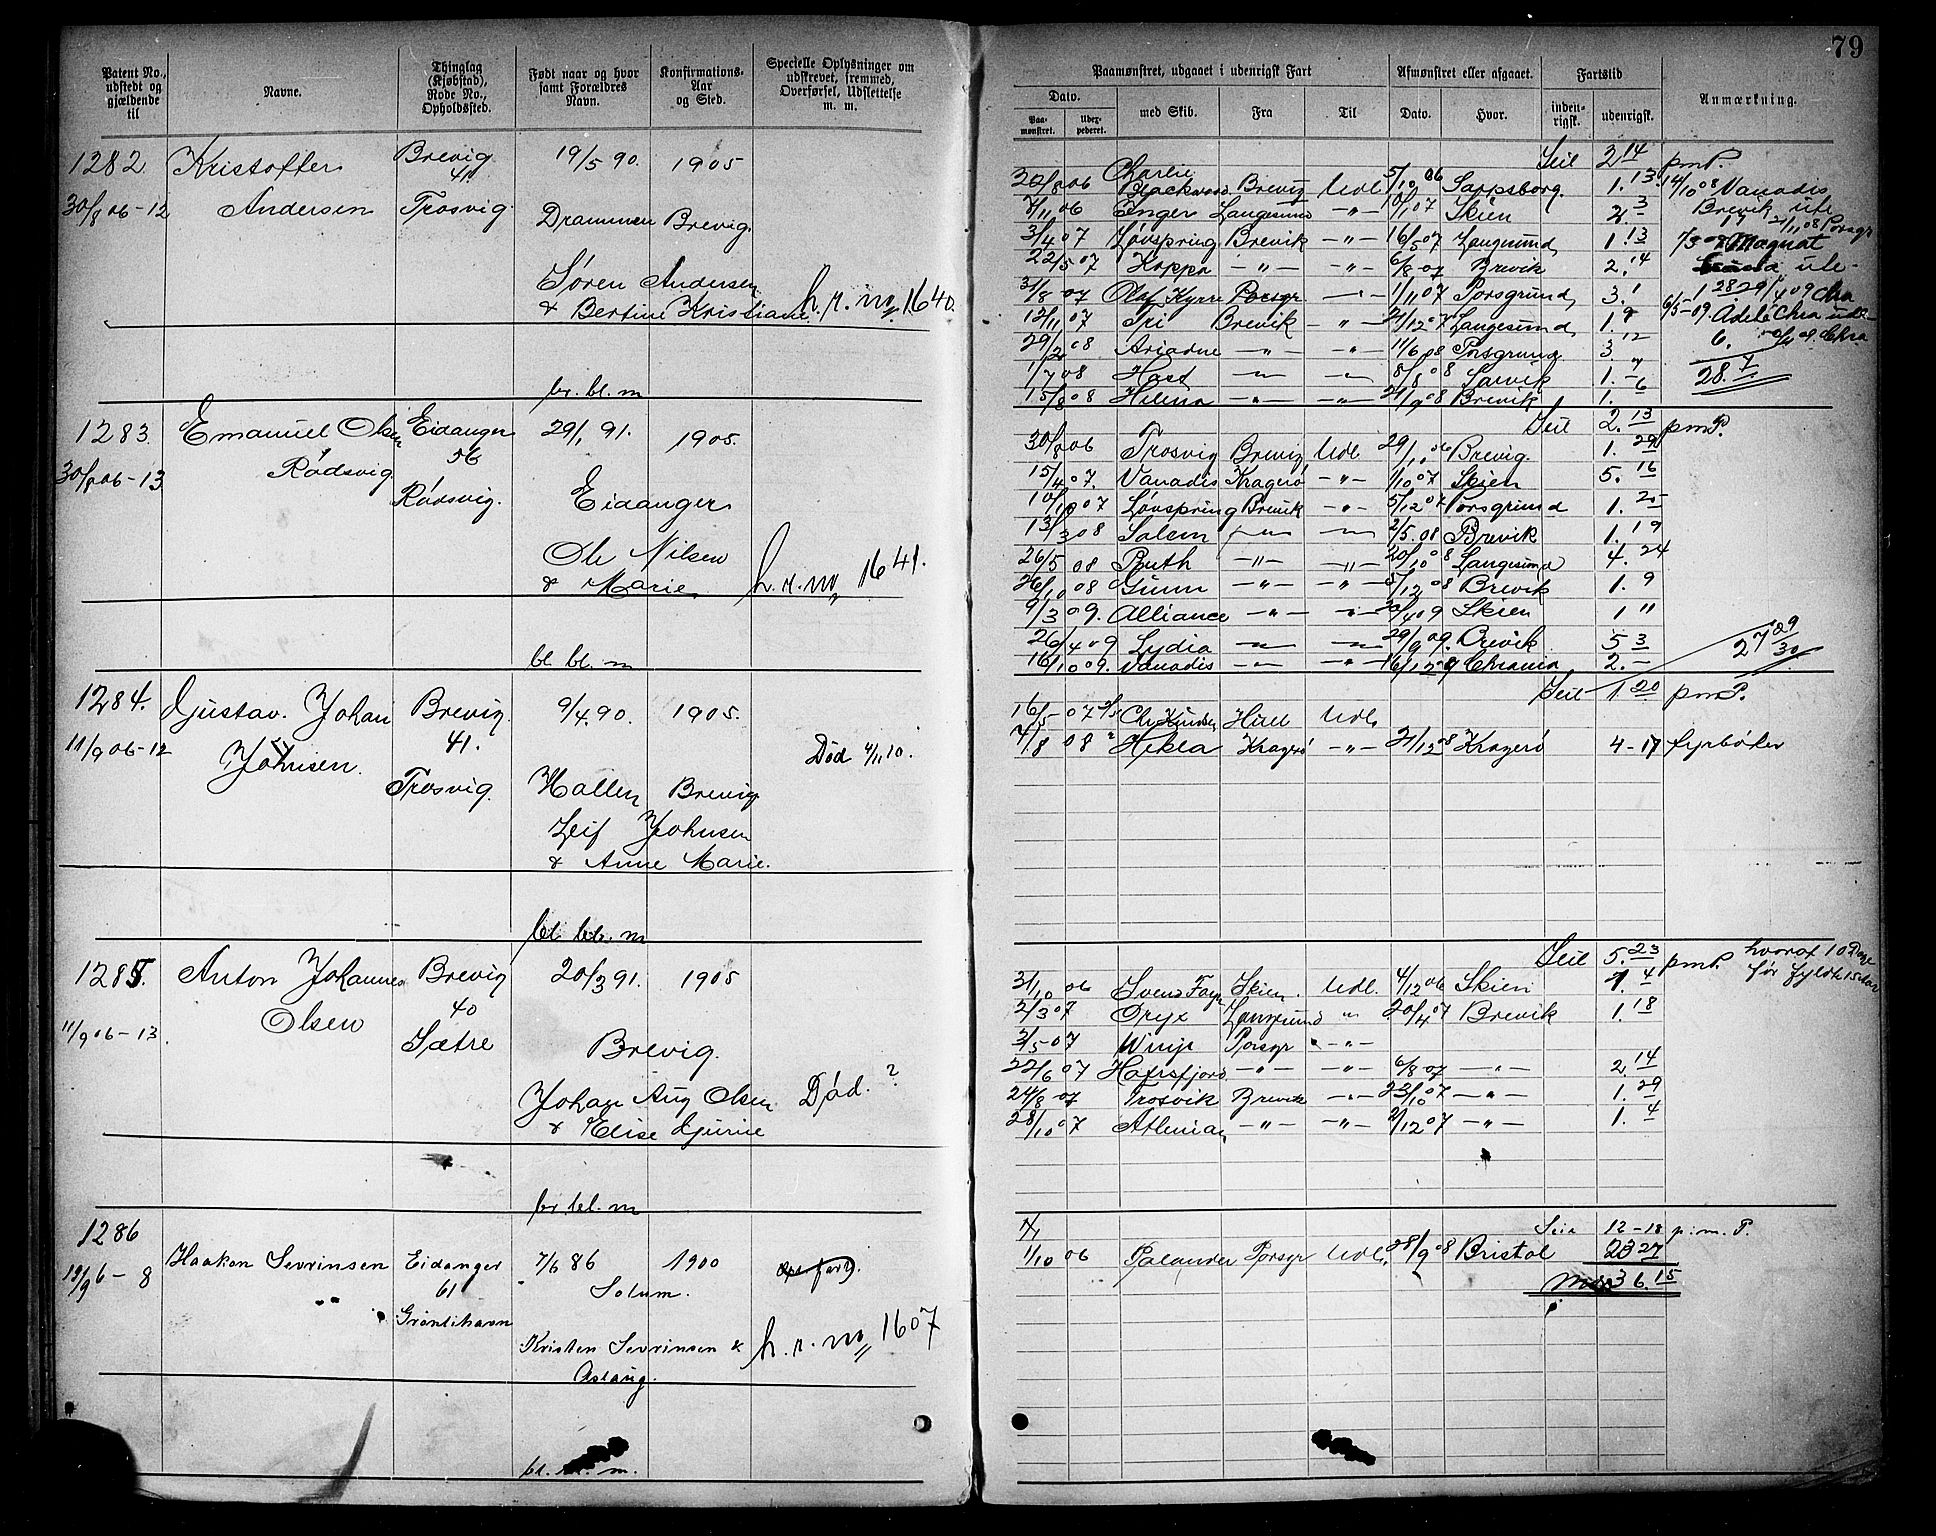 79
Patent No., udstedt og gjældende til
Navne.
Thinglag (Kjøbstad), Rode No., Opholdssted.
Født naar og hvor samt Forældres Navn.
Konfirmations-Aar og Sted.
Specielle Oplysninger om udskrevet, fremmed, Overførsel, Udslettelse m. m.
Paamønstret, udgaaet i udenrigsk Fart
Afmønstret eller afgaaet.
Fartstid
Anmærkning.
Dato.
Paa-mønstret.
med Skib.
Fra
Til
Dato.
Hvor.
inden-rigsk.
udenrigsk.
1282 Kristoffer Brevig 19/5 90. 1905
41
30/8 06-12 Andersen Trosvig Drammen Brevig.
Søren Andersen
& Bertine Kristiane h. r. no 1640.
br. bl. m
Seil 2 14 pmP.
30/8 06 Charlie Blackwood Brevig Udl 5/10 06 Sarpsborg 1. 13 14/10 08 Vanadis
7/11 06 Enger Langesund -"- 10/1 07 Skien 2 3 Brevik ute
3/4 07 Løvspring Brevik -"- 16/5 07 Langesund 1 13
22/5 07 Koppa -"- -"- 6/8 07 Brevik 2. 14
31/8 07 Olaf Kyrre Porsgr -"- 1/11 07 Porsgrund 3. 1
12/11 07 Fri Brevik -"- 21/12 07 Langesund 1. 9
29/2 08 Ariadne -"- -"- 11/6 08 Porsgrund 3 12
1/7 08 Høst -"- -"- 8/8 08 Larvik 1. 7 28. 7
15/8 08 Helena -"- -"- 21/9 08 Brevik 1. 6
1283. Emanuel Olsen Eidanger 29/1 91. 1905.
56
30/8 06-13 Rødsvig Rødsvig. Eidanger
Ole Nilsen
& Marie h. r. no 1641.
bl. bl. m
Seil 2. 13 pmP.
30/8 06 Trosvig Brevig Udl 29/10 06 Brevig. 1. 29
15/4 07. Vanadis Kragerø -"- 1/10 07 Skien 5. 16
10/10 07 Løvspring Brevik -"- 5/12 07 Porsgrund 1. 25
13/3 08 Salem -"- -"- 2/5.08 Brevik 1. 19
26/5 08 Ruth -"- -"- 20/10 08 Langesund 4. 24
26/10 08 Gunn -"- -"- 5/12 08 Brevik 1. 9
9/3 09. Alliance -"- -"- 20/4 09 Skien 1 "
26/4 09 Lydia -"- -"- 29/9 09. Brevik 5 3
16/10 09. Vanadis -"- -"- 16/12 09 Chrania 2. - 27 29/30
1284. Gustav. Johan Brevig. 9/4.90. 1905.
11/9 06-12 Johnsen. 41. Død 4/11 10.
Trosvig. Hallen Brevig
Leif Johnsen
& Anne Marie.
bl. bl. m
Seil 1 20 pmP.
16/5-07 Chr Knudsen Udl
7/8 08 Hekla Kragerø -"- 21/12 08 Kragerø 4-17 fyrbøter
1285. Anton Johannes Brevig 20/3 91. 1905
40
11/9 06-13. Olsen Sætre Brevig.
Johan Aug Olsen Død. ?
& Elise Gurine
br. bl. m
Seil 5. 23 pmP. hvoraf 10 Dage
før fyldt 15 Aar
31/10 06 Svend Foyn Skien. Udl. 4/12 06 Skien 1. 4
2/3 07 Oryx Langesund " 20/4 07 Brevik 1. 18
2/5-07 Porsgr -"-
22/6 07 Hafrsfjord -"- -"- 6/8 07 -"- 2. 14
24/8-07 Trosvik Brevik -"- 22/10 07 -"- 1. 29
28/10 07 Athenian -"- -"- 2/12 07 -"- 1. 4
1286
Haakon Sevrinsen Eidanger 7/6 86 1900
19/9 6-8 61 Solum.
Grønlihavn
Kristen Sevrinsen & h. r. no 1607
Aslaug.
bl. bl. m.
Seil 12-18 p.m.P.
1/10 06 Palander Porsgr Udl. 28/9 08 Bristol 23 27
36. 15